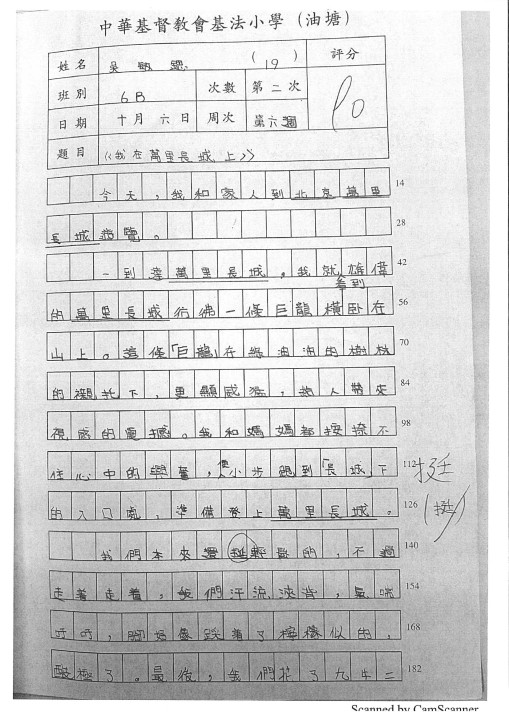 中華基督教會基法小學（油塘）
姓名 吳 (19) 評分
班別 6B 次數 第二次
日期 十月六日 周次 第六週
題目 《我在萬里長城上》
今天，我和家人到北京萬里 14
長城遊覽。 28
一到達萬里長城，我就看到雄偉 42
的萬里長城彷彿一條巨龍橫卧在 56
山上。這條「巨龍」在綠油油的樹林 70
的襯托下，更顯威猛，給人帶來 84
視感的震撼。我和媽媽都按捺不 98
住心中的興奮，便小步跑到「長城」下 112 挺
的入口處，準備登上萬里長城。 126 (挺)
我們本來還輕鬆的，不過 140
走着走着，我們汗流浹背，氣喘 154
吁吁，腳好像踩着了檸檬似的， 168
酸極了。最後，我們花了九牛二 182
Scanned by CamScanner